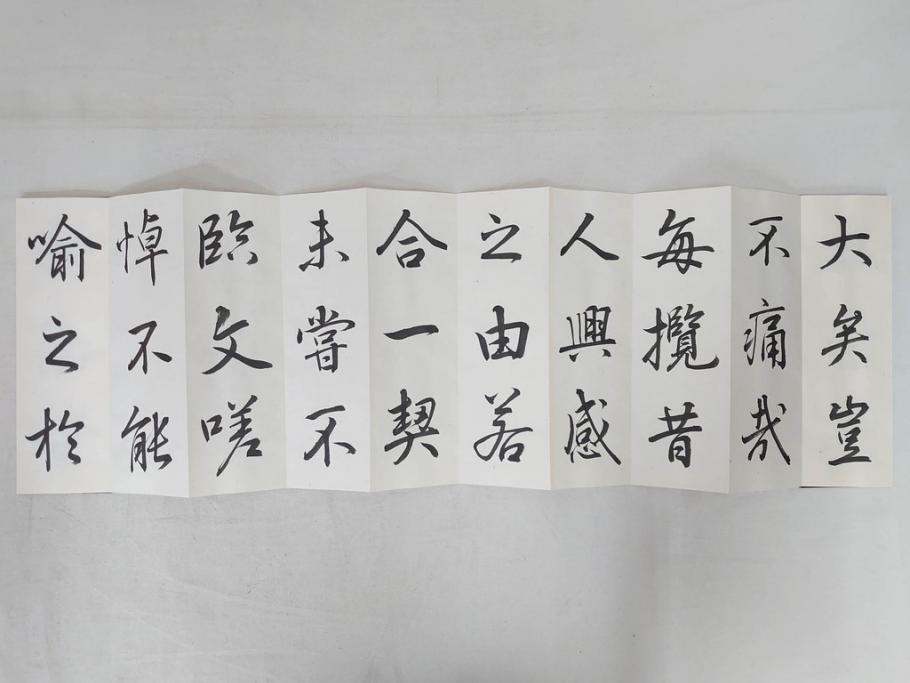 大矣豈
不痛哉
每攬昔
人興感
之由若
合一契
未嘗不
臨文嗟
悼不能
喻之於